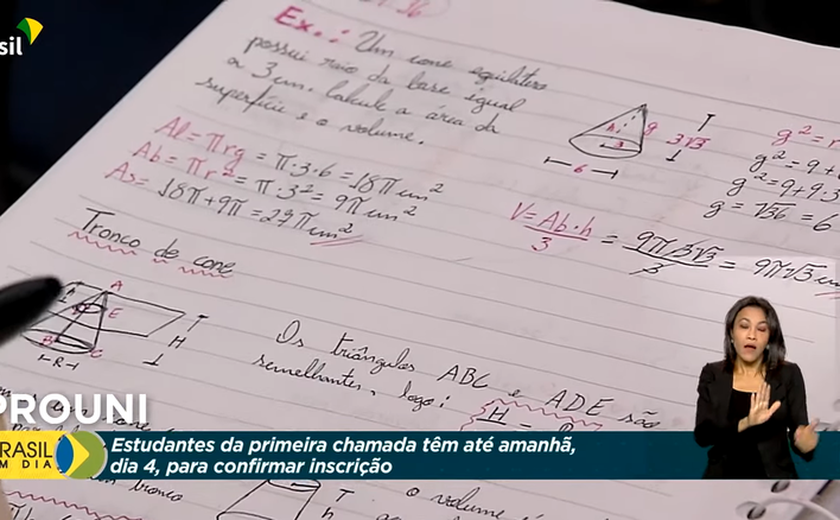 sil
Ex.: Um cone equilátero
possui raio da base igual
a 3cm. Calcule a área da
superfície e o volume.
Al = πrg = π·3·6 = 18π cm²
Ab = πr² = π·3² = 9π cm²
As = 18π + 9π = 27π cm²
h g 3√3
3
6
g² = r
g² = 9 +
g² = 9 + 9·3
g = √36 = 6
V = Ab·h / 3 = 9π·3√3 / 3 = 9π√3 cm
Tronco de cone
A
E
B C
H
R
Os triângulos ABC e ADE são
semelhantes, logo:
H
PROUNI
BRASIL
EM DIA
Estudantes da primeira chamada têm até amanhã,
dia 4, para confirmar inscrição
tronco
o volume